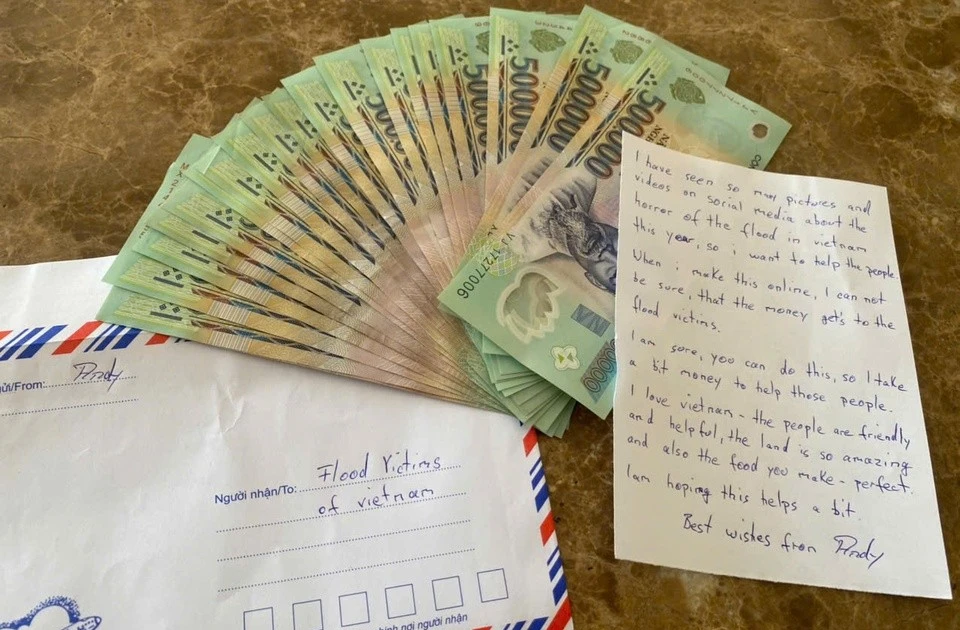 500000
500000
500000
500000
500000
17277006
I have seen so many pictures and
videos on social media about the
horror of the flood in vietnam
this year, so i want to help the people.
When i make this online, I can not
be sure, that the money get's to the
flood victims.
I am sure, you can do this, so I take
a bit money to help those people.
I love vietnam - the people are friendly
and helpful, the land is so amazing
and also the food you make - perfect.
I am hoping this helps a bit
Best wishes from Andy
/From: Andy
Người nhận/To: Flood Victims
of vietnam
nơi người nhận